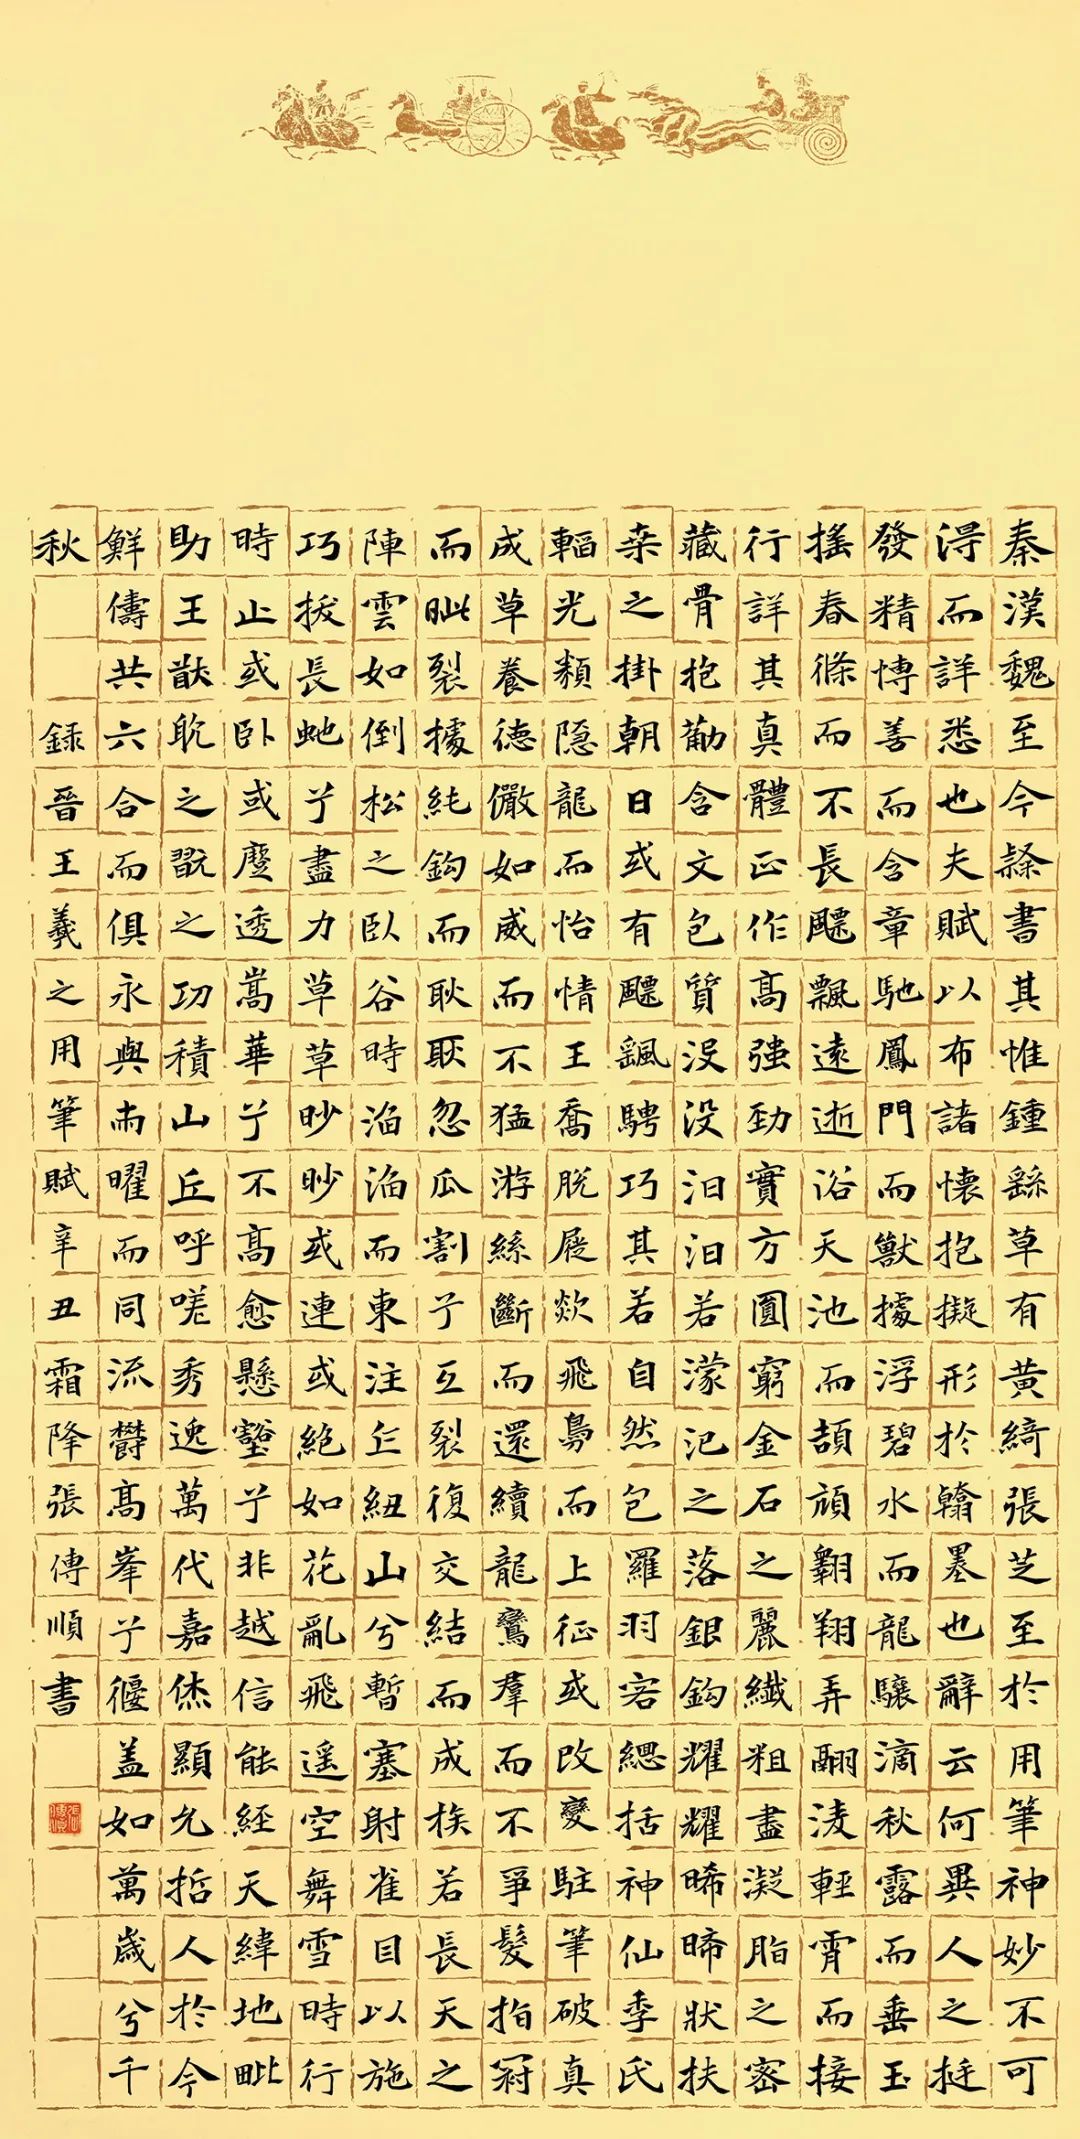 秦漢魏至今隸書其惟鍾繇草有黃綺張芝至於用筆神妙不可
得而詳悉也夫賦以布諸懷抱擬形於翰墨也辭云何異人之挺
發精博善而含章馳鳳門而獸據浮碧水而龍驤滴秋露而垂玉
搖春條而不長飃飄遠逝浴天池而頡頏翱翔弄翮淩輕霄而接
行詳其真體正作高強勁實方圓窮金石之麗纖粗盡凝脂之密
藏骨抱勁含文包質沒沒汩汩若濛汜之落銀鈎耀耀晞晞狀扶
桒之掛朝日或有飃飄騁巧其若自然包羅羽客緫括神仙季氏
韜光類隱龍而怡情王喬脫屣欻飛鳧而上征或改變駐筆破真
成草養德儼如威而不猛游絲斷而還續龍鸞羣而不爭髮指冠
而眦裂據純鈎而耿耿忽瓜割兮互裂復交結而成族若長天之
陣雲如倒松之臥谷時滔滔而東注乍紐山兮暫塞射雀目以施
巧拔長虵兮盡力草草眇眇或連或絕如花亂飛遥空舞雪時行
時止或卧或蹷透嵩華兮不高愈懸壑兮非越信能經天緯地毗
助王猷耽之翫之功積山丘呼嗟秀逸萬代嘉休顯允哲人於今
鮮儔共六合而俱永與兩曜而同流鬱高峯兮偃蓋如萬歲兮千
秋 録晉王羲之用筆賦辛丑霜降張傳順書